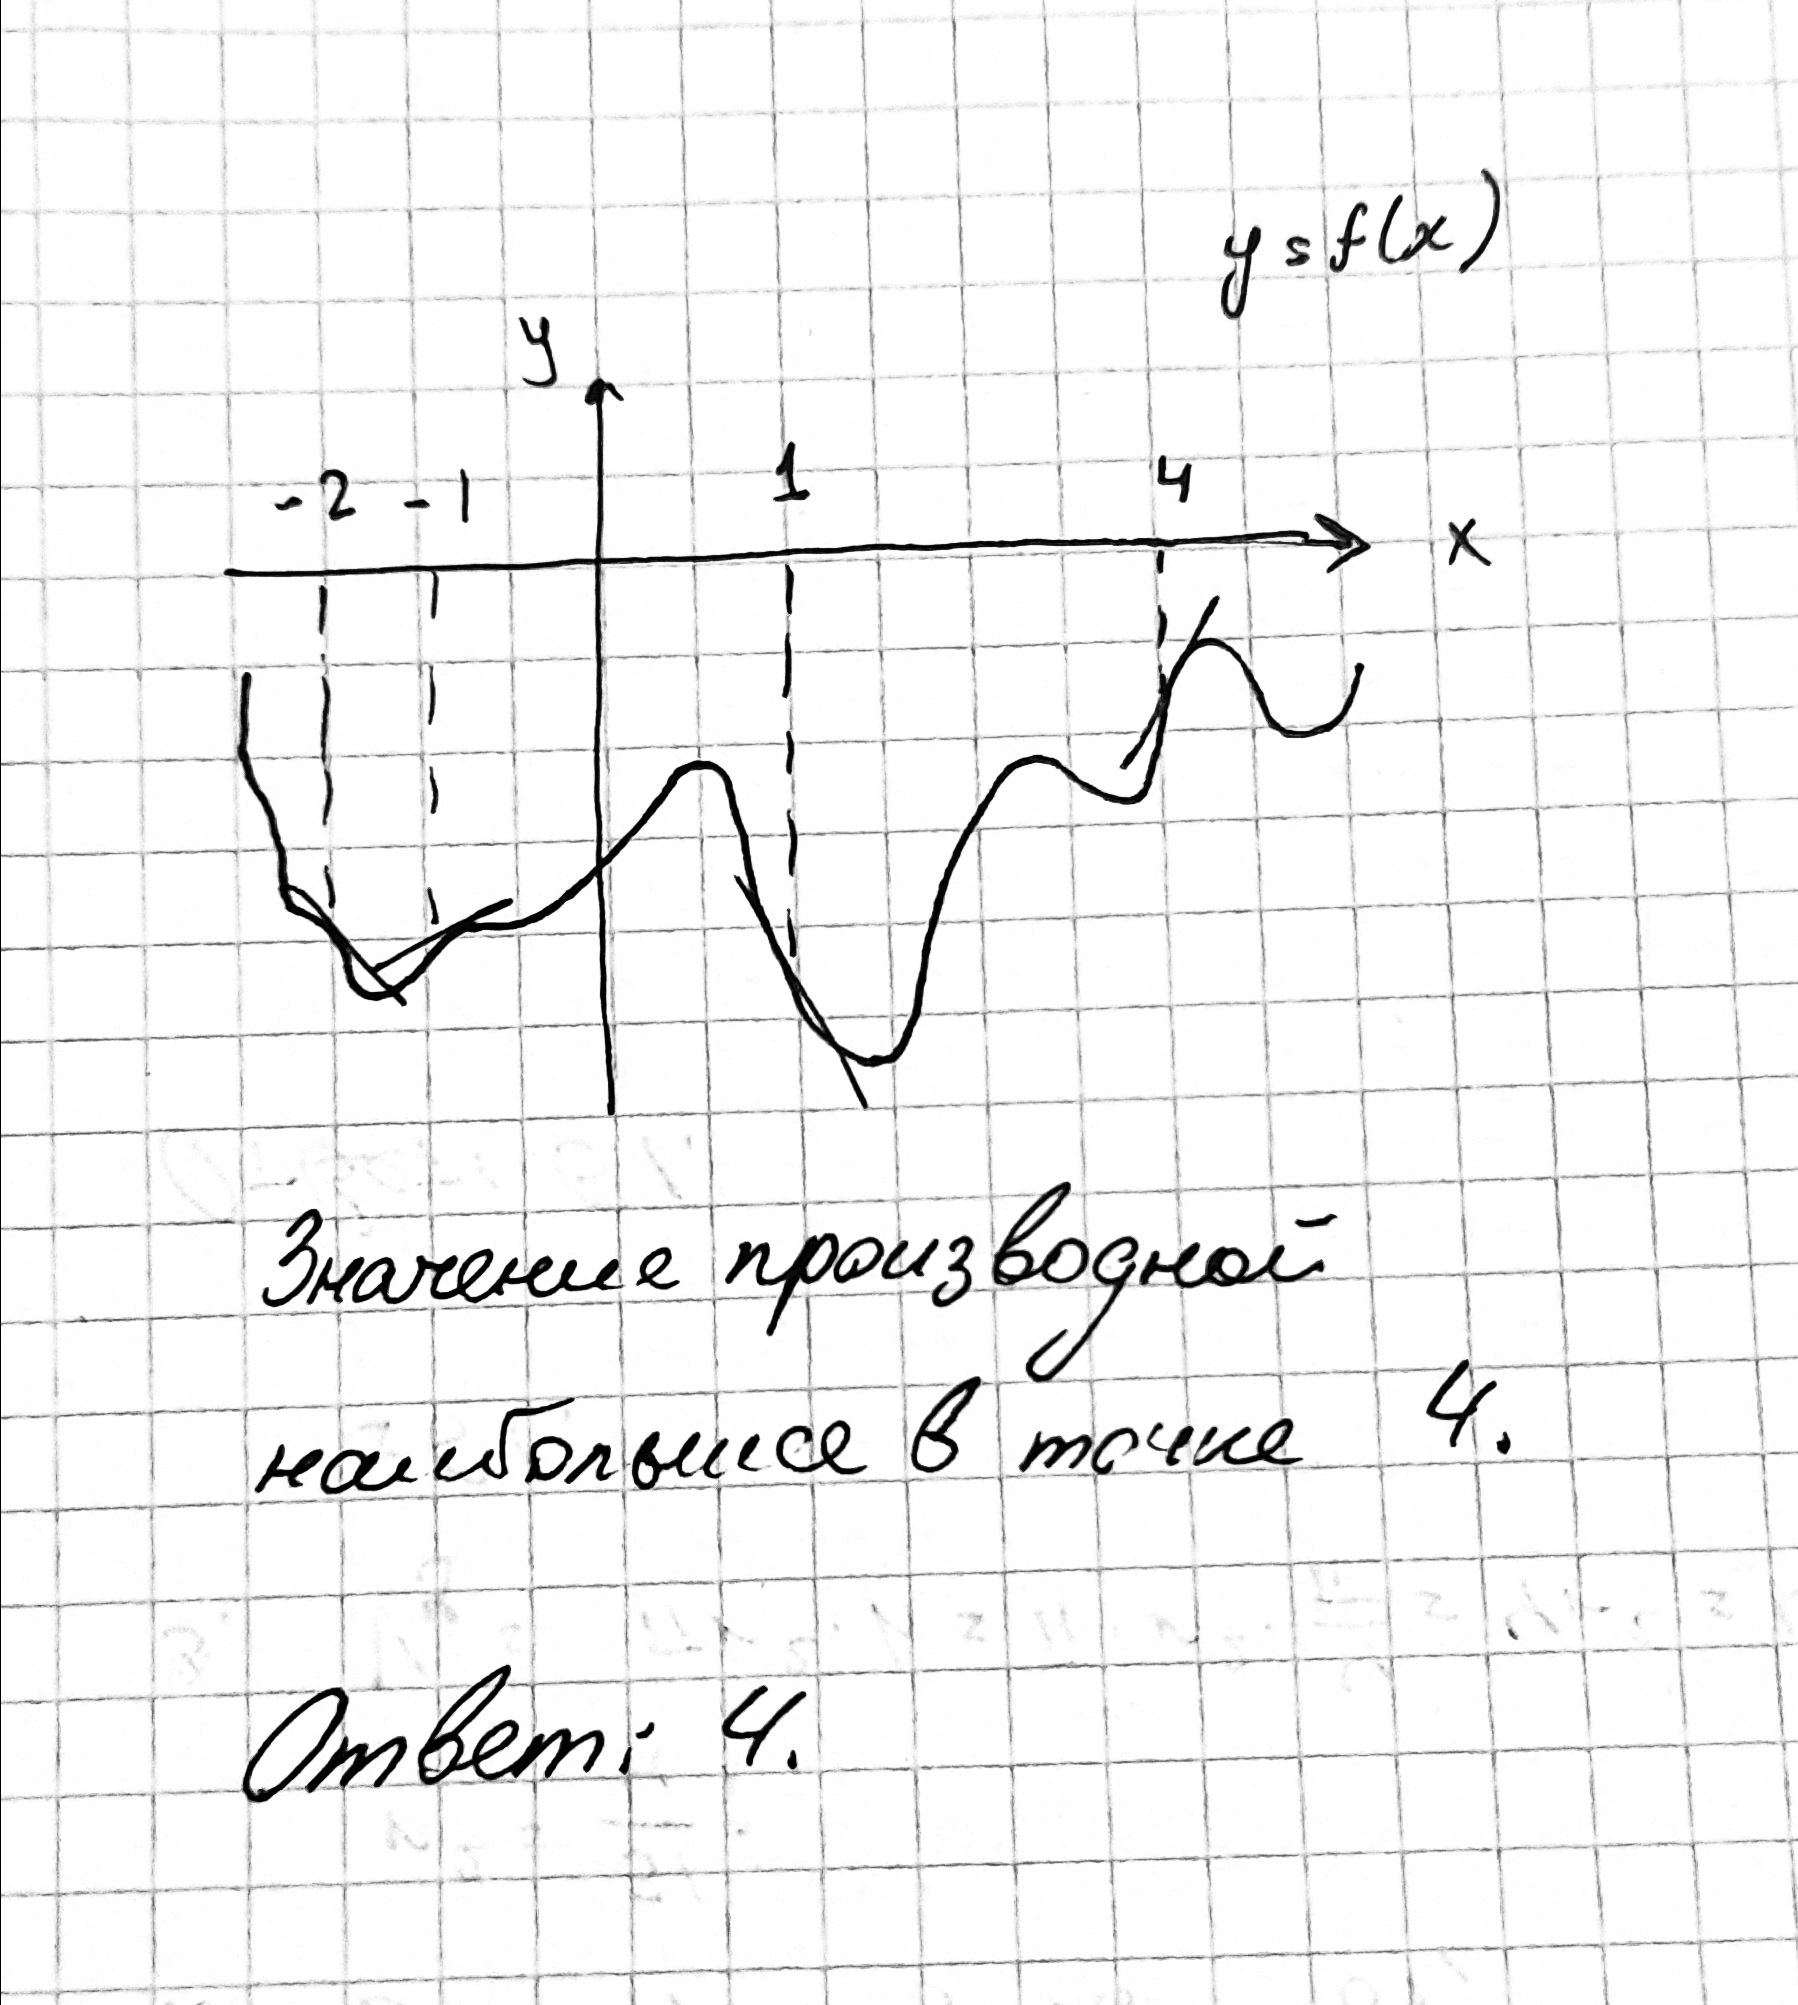 y = f(x)
y
-2 -1 1 4
x
Значение производной
наибольшее в точке 4.
Ответ: 4.